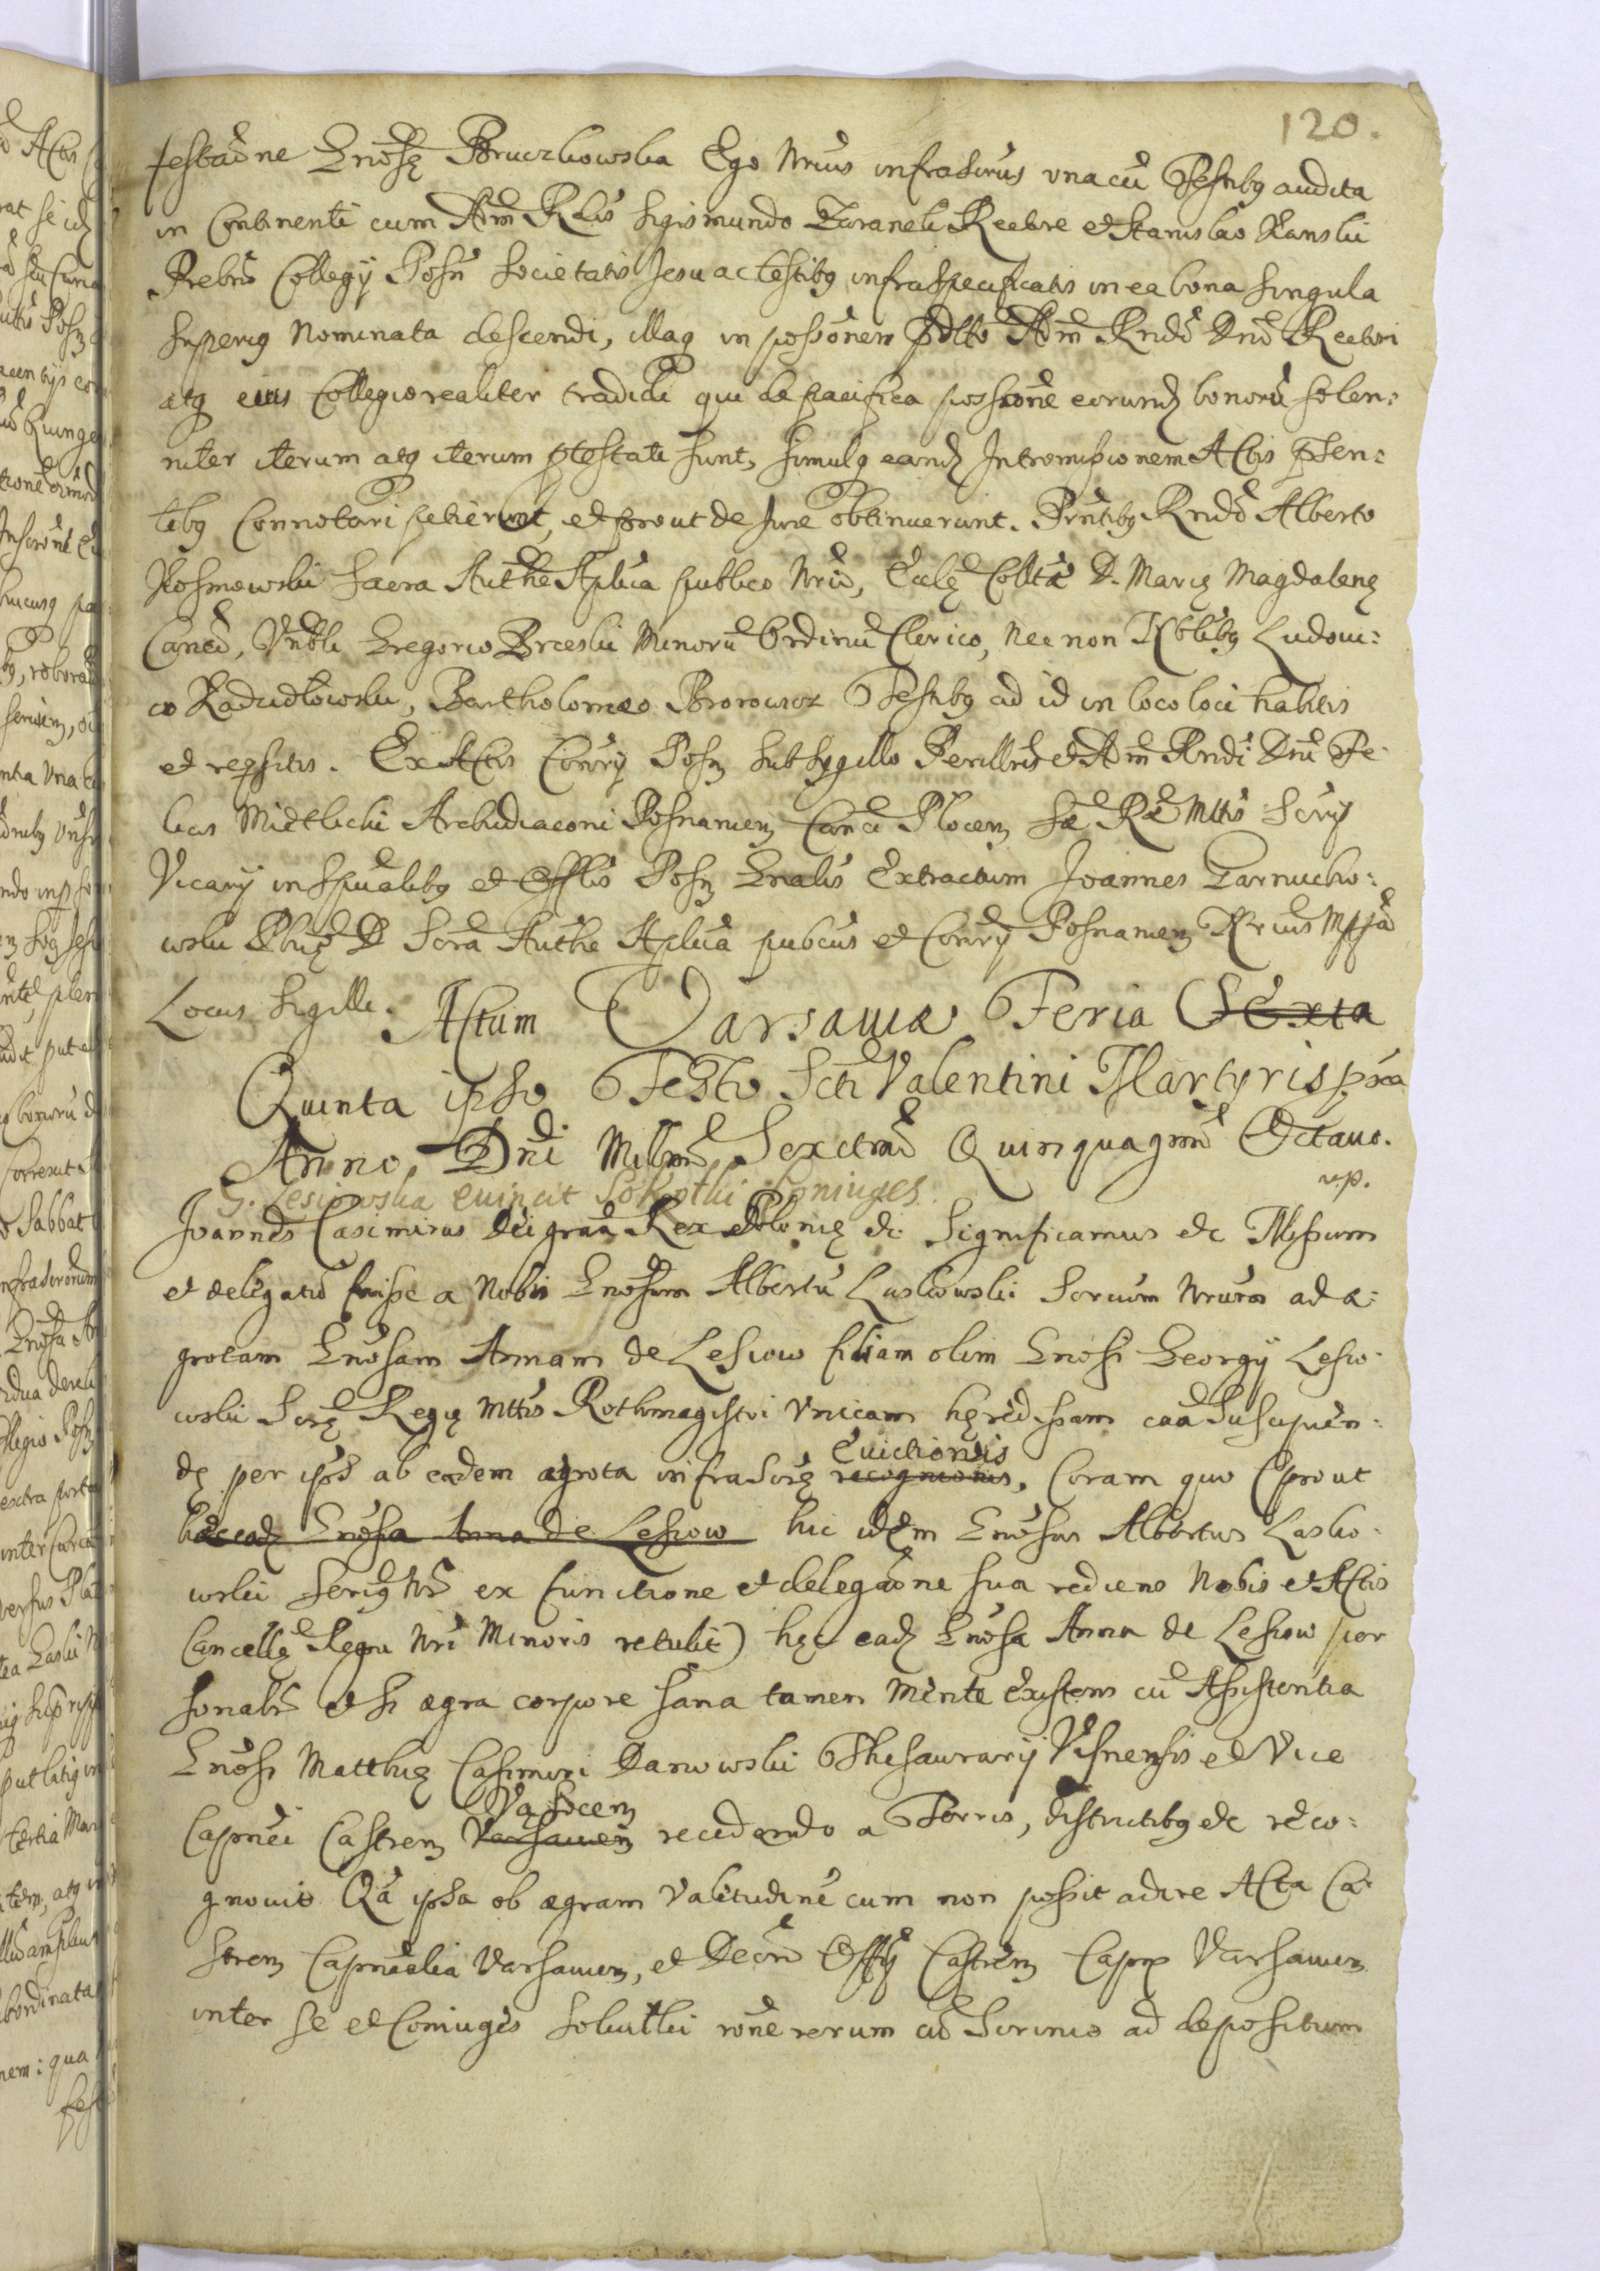 120.
testaõne Gnõsę Bruczkowska Ego Nrius infrascrus unacũ Testibq audita
in Continenti cum Adm̃ Rdis Sigismundo Rectore et Stanislao
Prebris Collegij Posñ Societatis Jesu ac testibq infraspecificatis in ea bona singula
superiq Nominata descendi, illaq in possõnem pdtto Adm̃ Rndõ Dnõ Rectori
atq eius Collegio realiter tradidi qui de pacifica possõne eorundz bonorũ solen:
niter iterum atq iterum ptestati sunt, simulq eandz Intromissionem Actis psen:
tibq Connotari petierunt, et prout de Jure obtinuerunt. Pñtibq Rndõ Alberto
Kosmowski Sacra Authẽ Aplica publico Nriõ, Eccłę Colltæ D. Marię Magdalenę
Canco, Vnbli Gregorio Brzeski Minorũ Ordinũ Clerico, Nec non Nbłibq Ludoui:
co Zadzidłowski, Bartholomæo Borowicz Testibq ad id in loco loci habitis
et reqsitis. Ex Actis Consrij Posn Sub Sygillo Perillris et Adm̃ Rndi Dni Fe:
licis Miełlicki Archidiaconi Posnanien Canci Plocen Sæ Ræ Mttis Scrij
Vicarij in Spũalibq et Offlis Posn Gnalis Extractum Joannes Garnucho:
wski Phiæ D Scra Authe Aplica pubcus et Consrij Posnanien Nrius Mppã
Locus Sigilli. Actum Varsauiæ Feria Sexta
Quinta ipso Festo Scti Valentini Martyris pxa
Anno Dni Millmo Sexctmõ Quinquagmõ Octauo.
G. Lesiowska euincit Sokołki Coniuges. v.p.
Joannes Casimirus Dei gratia Rex Polonię etc Significamus etc Missum
et delegatũ fuisse a Nobis Gnõsum Albertũ Laskowski Scruum Nrum ad æ:
grotam Gnõsam Annam de Lesiow filiam olim Gnõsi Georgij Lesio:
wski Scrę Regię Mttis Rothmagistri Vnicam hęredissam caã Suscipien:
dę per ipsõ ab eadem ægrota infrascrę recognionis Euictionis, Coram quo (prout
hæc eadz Gnõsa Anna de Lesiow hic idem Gnõsus Albertus Lasko:
wski Seruq Nr ex functione et delegaõne sua rediens Nobis et Actis
Cancellę Regni Nri Minoris retulit) hęc eadz Gnõsa Anna de Lesiow per
sonalr et si ægra corpore sana tamen Mente existens cũ Assistentia
Gnõsi Matthię Casimiri Danowski Thesaurarij Visnensis et Vice
Capnei Castren Varsauien Vasocen recedendo a Terris, districtibq etc reco:
gnouit Qã ipsa ob ægram Valitudinẽ cum non possit adire Acta Ca:
stren Capnealia Varsauien, et Decrõ Offij Castren Capn Varsauien
inter se et Coniuges Sokołki rõne rerum cũ Scrinio ad depositum